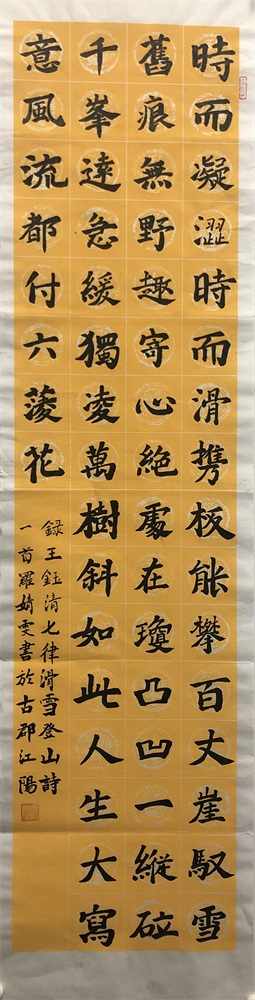 時而凝澀時而滑攜板能攀百丈崖馭雪
舊痕無野趣寄心絕處在瓊凸凹一縱砬
千峯遠急緩獨凌萬樹斜如此人生大寫
意風流都付六蔆花
録王鈺清七律滑雪登山詩
一首羅婧雯書於古郡江陽